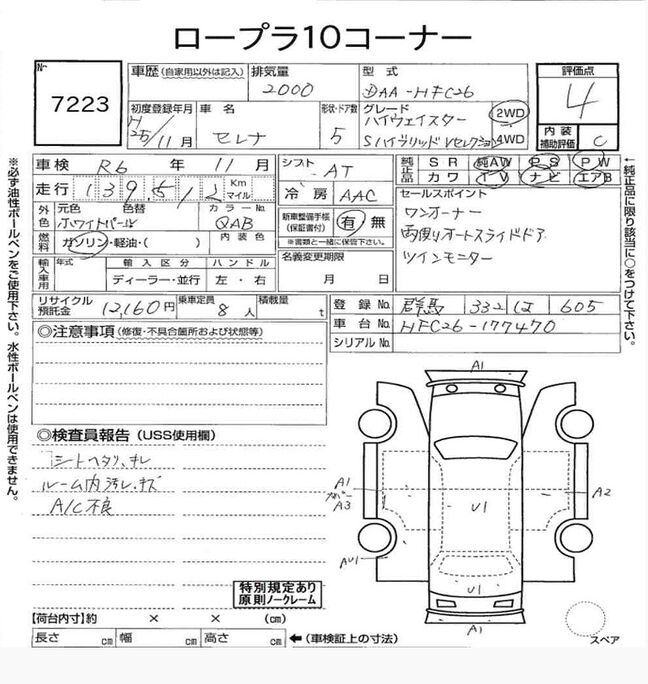 ロープラ10コーナー
No 7223
車歴 (自家用以外は記入) 排気量 2000 型式 DAA-HFC26
評価点 4
内装補助評価 C
初度登録年月 H25/11月 車名 セレナ 形状・ドア数 5 グレード ハイウェイスター Sハイブリッド Vセレクション 2WD 4WD
車検 R6年 11月
走行 139,512 Km マイル
シフト AT
冷房 AAC
純正品 SR 純AW PS PW
カワ TV ナビ エアB
外色 元色 色替 ホワイトパール カラーNo. QAB
燃料 ガソリン・軽油・( ) 内装色
新車整備手帳(保証書付) 有 無
※書類と一緒に保管下さい。
セールスポイント
ワンオーナー
両側オートスライドドア
ツインモニター
輸入車用 年式 輸入区分 ハンドル
ディーラー・並行 左・右
名義変更期限
月 日
リサイクル預託金 12,160円 乗車定員 8人 積載量 t
登録No. 群馬 332 は 605
車台No. HFC26-177470
シリアルNo.
◎注意事項 (修復・不具合箇所および状態等)
◎検査員報告 (USS使用欄)
シートヘタリ、キレ
ルーム内汚レ、キズ
A/C不良
特別規定あり
原則ノークレーム
【荷台内寸】約 × × (cm)
長さ cm 幅 cm 高さ cm ←(車検証上の寸法)
A1
A1
A3
U1
A2
AU1
U1
A1
スペア
※必ず油性ボールペンをご使用下さい。水性ボールペンは使用できません。
←純正品に限り該当に○をつけて下さい。